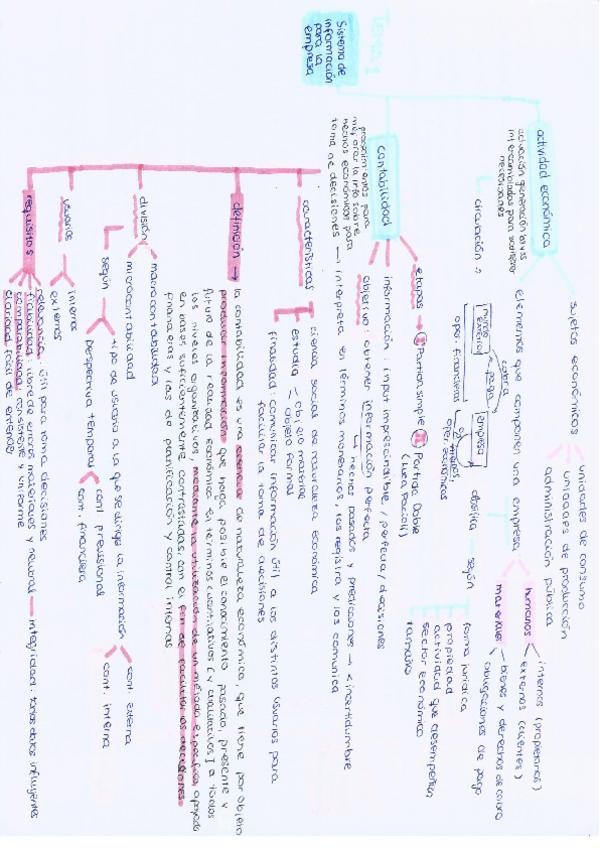 Tema 1
Sistema de
información
para la
empresa
actividad económica
necesidades
sujetos económicos
unidades de consumo
unidades de producción
administración pública
circulación
oper. financieras
cobra
paga
empresa
Elementos que componen una empresa
humanos
internos (propietarios)
externos (clientes)
materiales
bienes y derechos de cobro
obligaciones de pago
clasifica
según
forma jurídica
propiedad
actividad que desempeñan
sector económico
tamaño
contabilidad
mejorar la info sobre
hechos económicos para
toma de decisiones → interpreta en términos monetarios, los registra y los comunica
etapas → I Partida simple II Partida Doble
(Luca Pacioli)
información: input imprescindible / perfecta / decisiones
objetivo: obtener información perfecta
↳ hechos pasados y predicciones → <incertidumbre
características
ciencia social de naturaleza económica
estudia
objeto material
objeto formal
finalidad: comunicar información útil a los distintos usuarios para
facilitar la toma de decisiones
definición → la contabilidad es una ciencia de naturaleza económica, que tiene por objeto
producir información que haga posible el conocimiento pasado, presente y
futuro de la realidad económica en términos cuantitativos (y cualitativos) a todos
los niveles organizativos, mediante la utilización de un método específico, apoyado
en bases suficientemente contrastadas, con el fin de facilitar las decisiones
financieras y las de planificación y control internas
división
macrocontabilidad
microcontabilidad
según
tipo de usuario a la que se dirige la información
cont. externa
cont. interna
perspectiva temporal
cont. previsional
cont. financiera
usuarios
internos
externos
requisitos
relevancia: útil para toma decisiones
fiabilidad: libre de errores materiales y neutral → integridad: todos datos influyentes
comparabilidad: consistente y uniforme
claridad: fácil de entender